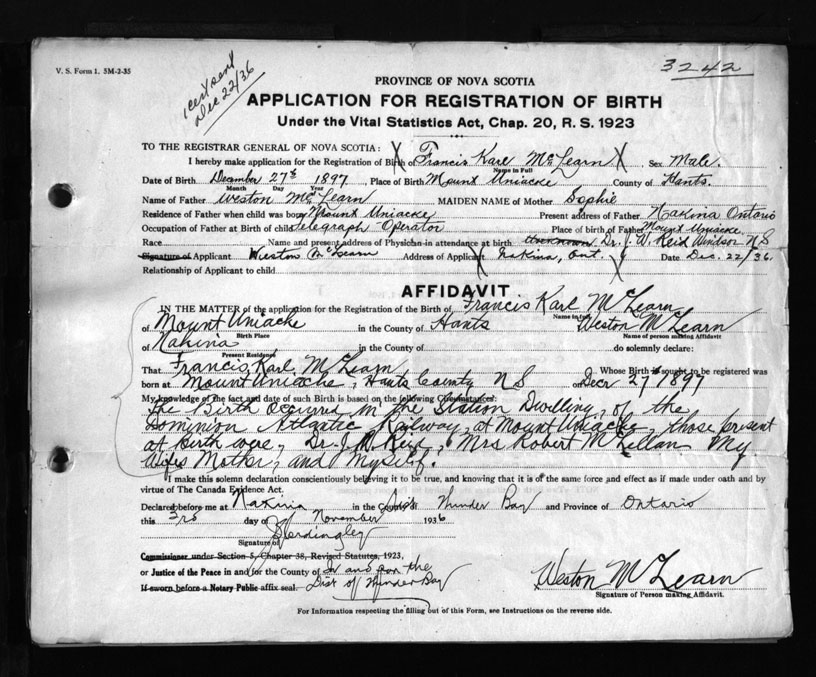 V. S. Form 1. 5M-2-35
1 cert sent
Dec 22/36
3242
PROVINCE OF NOVA SCOTIA
APPLICATION FOR REGISTRATION OF BIRTH
Under the Vital Statistics Act, Chap. 20, R. S. 1923
TO THE REGISTRAR GENERAL OF NOVA SCOTIA:
I hereby make application for the Registration of Birth of Francis Karl McLearn Sex Male.
Name in Full
Date of Birth December 27th 1897 Place of Birth Mount Uniacke County of Hants.
Month Day Year
Name of Father Weston McLearn MAIDEN NAME of Mother Sophie
Residence of Father when child was born Mount Uniacke Present address of Father Nakina Ontario
Occupation of Father at Birth of child telegraph Operator Place of birth of Father Mount Uniacke.
Race Name and present address of Physician in attendance at birth unknown Dr. J. W. Reid Windsor N S
Signature of Applicant Weston McLearn Address of Applicant Nakina, Ont. Date Dec. 22/36.
Relationship of Applicant to child
AFFIDAVIT
IN THE MATTER of the application for the Registration of the Birth of Francis Karl McLearn
Name in full
of Mount Uniacke in the County of Hants Weston McLearn
Birth Place Name of person making Affidavit
of Nakina in the County of do solemnly declare:
Present Residence
That Francis Karl McLearn Whose Birth is sought to be registered was
born at Mount Uniacke, Hants County N S on Decr 27 1897
My knowledge of the fact and date of such Birth is based on the following Circumstances:
The Birth occurred in the Station Dwelling, of the
Dominion Atlantic Railway, at Mount Uniacke, those present
at birth were, Dr. J. W. Reid, Mrs Robert McLellan My
Wifes Mother, and Myself.
I make this solemn declaration conscientiously believing it to be true, and knowing that it is of the same force and effect as if made under oath and by
virtue of The Canada Evidence Act.
Declared before me at Nakina in the County Dist Thunder Bay and Province of Ontario
this 3rd day of November 1936
Signature of
Commissioner under Section 5, Chapter 38, Revised Statutes, 1923,
or Justice of the Peace in and for the County of In and for the
If sworn before a Notary Public affix seal. Dist of Thunder Bay
Weston McLearn
Signature of Person making Affidavit.
For Information respecting the filling out of this Form, see Instructions on the reverse side.